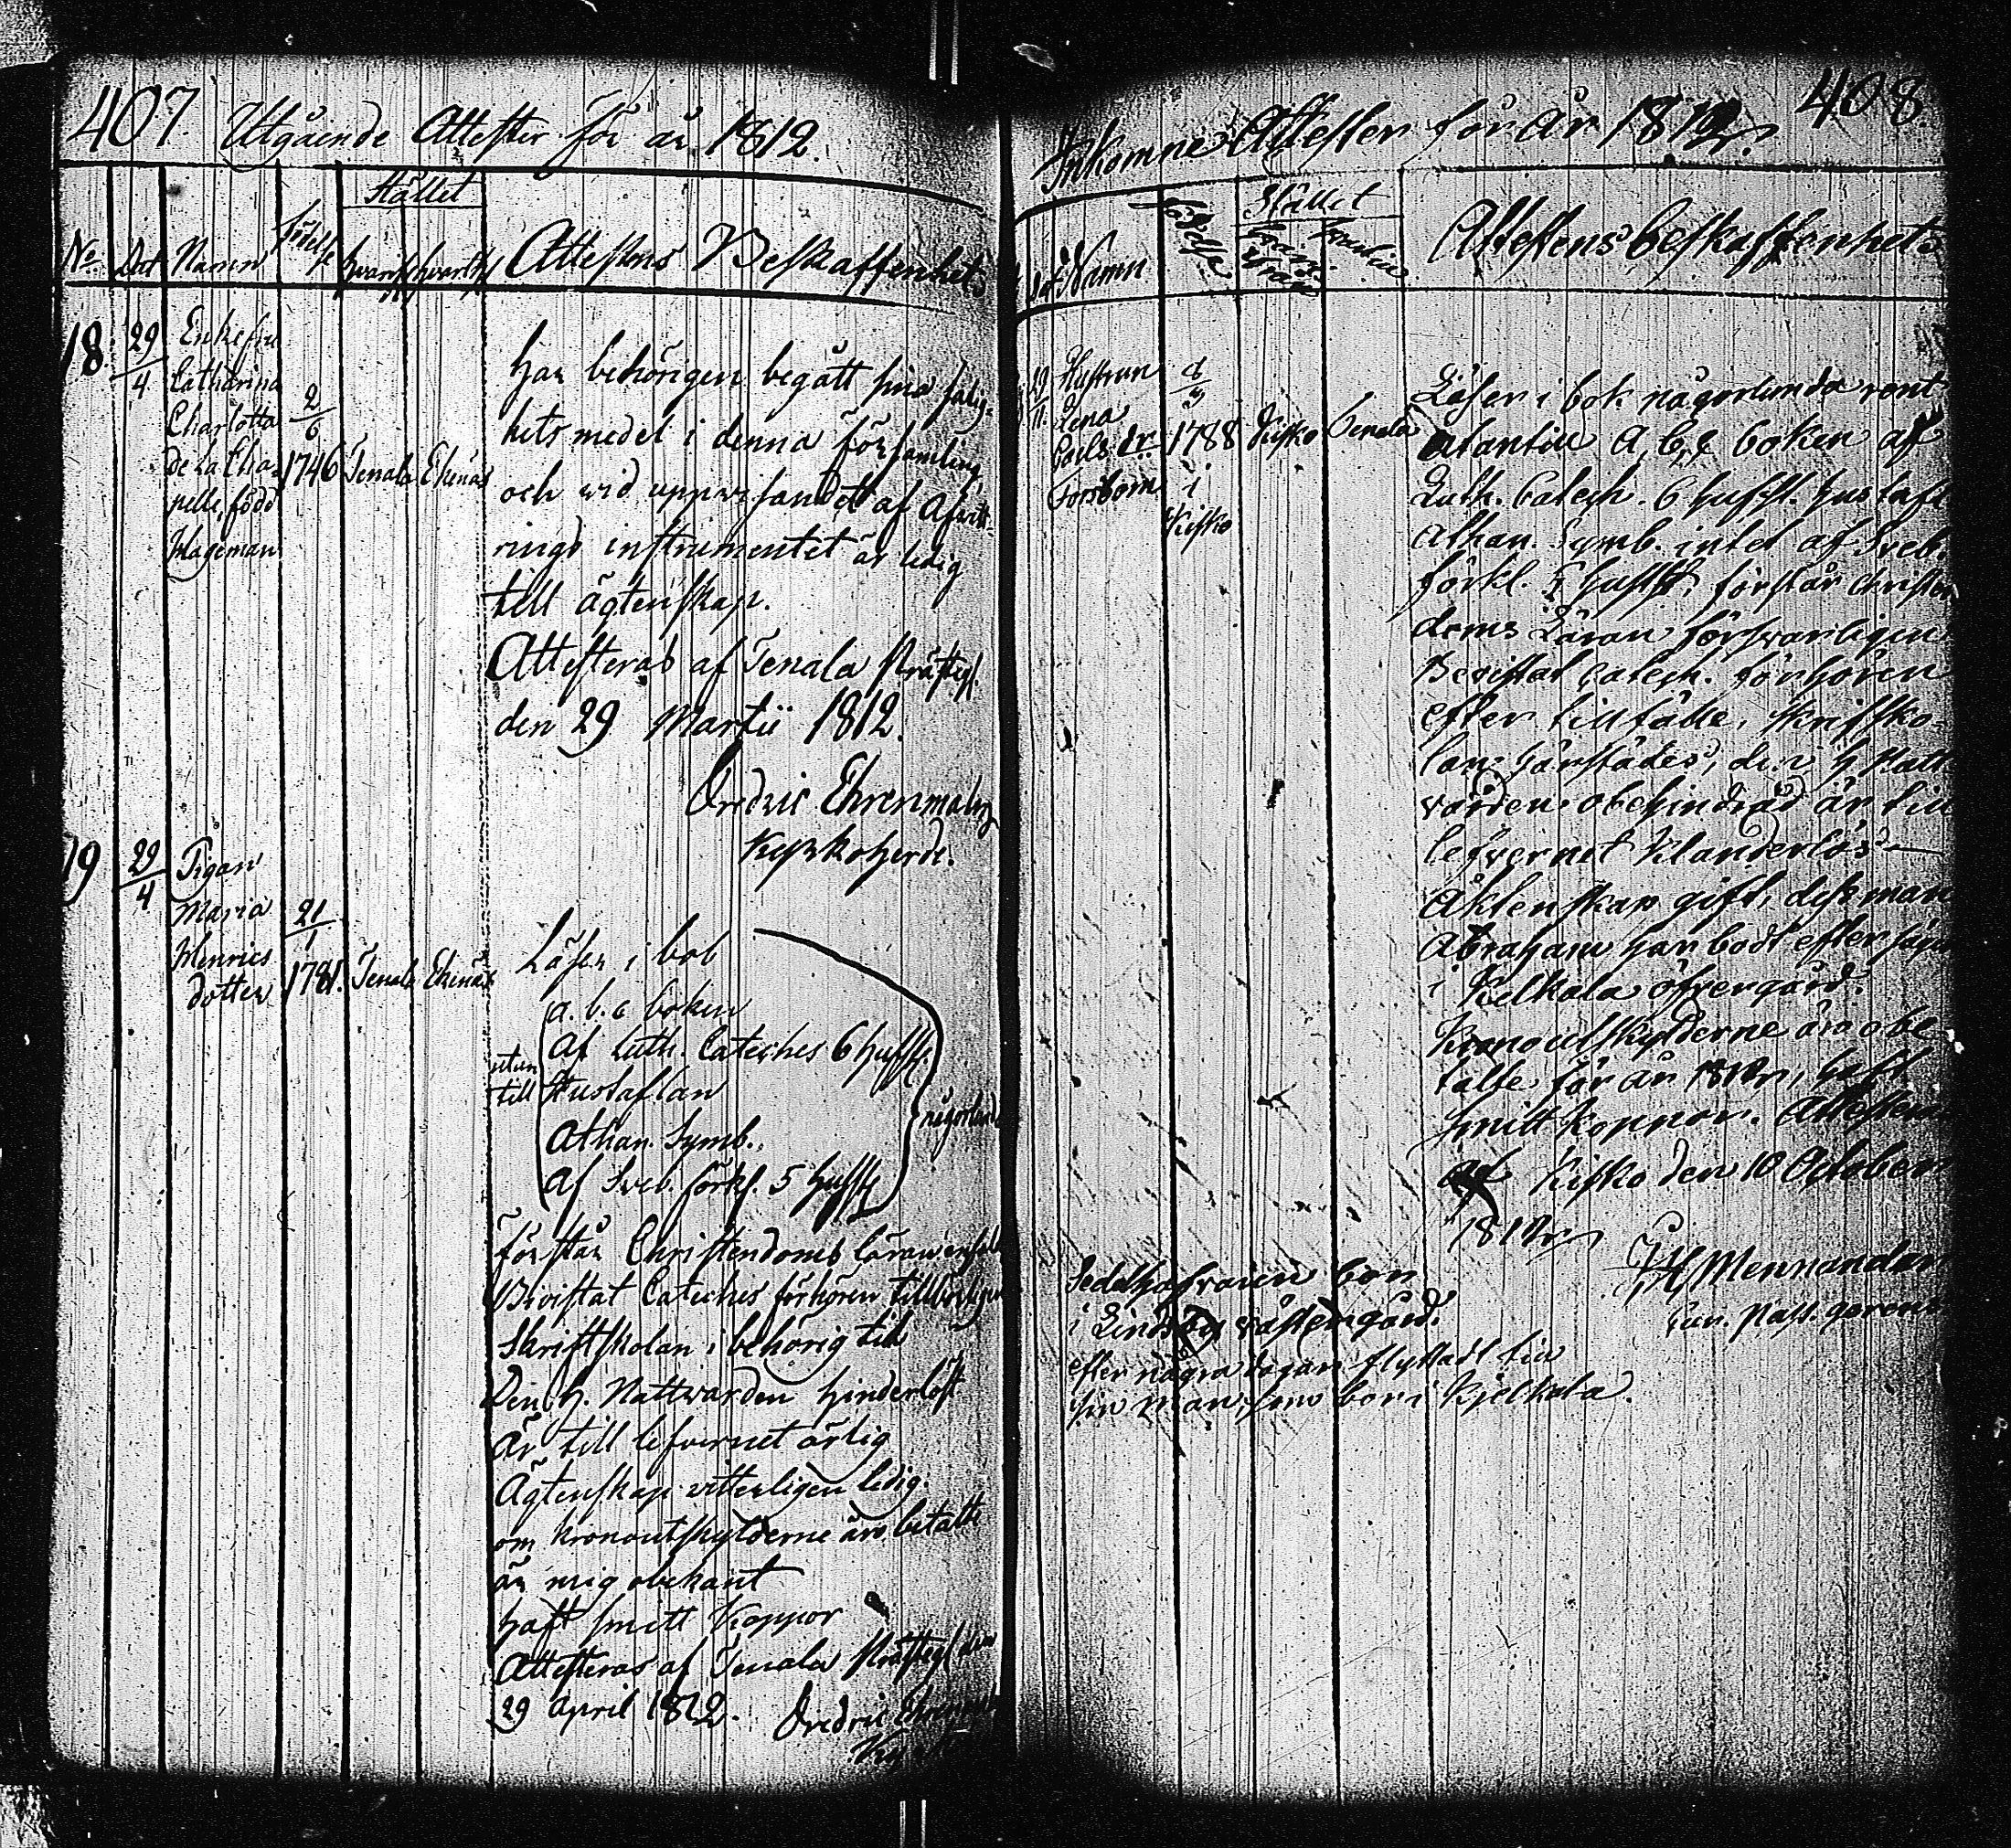 407. Utgående Attester för år 1812.
Stället
No. Dat Namn födelse hvarifr hvarthn Attestens Beskaffenhet
18 29/4 Enkefru
Catharina
Charlotta 2/6
De la Cha-
pelle, född 1746 Tenala Ekenäs
Hageman
har behörigen begått sina salig-
hets medel i denna församling,
och vid uppvisandet af afvitt-
rings instrumentet är ledig
till ägtenskap.
Attesteras af Tenala Prästeg.
den 29 Martii 1812.
Fredric Ehrenmalm
Kyrkoherde.
19 29/4 Pigan
Maria 21/1
Henrics
dotter 1781. Tenala Ekenäs
Läser i bok
a. b. c boken
Af Luth. Cateches 6 hufst.
utan
till Hustaflan
Athan. Symb.
någorlunda
Af Sveb. förkl. 5 hufst
förstår Christendoms läran
Bevistat Cateches förhören tillbörligen
Skriftskolan i behörig tid
Den H. Nattwarden hinderlöst
Är till lefvernet ärlig
Ägtenskap vitterligen ledig.
om Kronoutskylderne äro betalte
är mig obekant
haft smitt Koppor
Attesteras af Tenala Prästeg den
29 April 1812. Fredric Ehrenmalm
408.
Inkomne Attester för år 1812.
Stället
Dat Namn födelse Attestens beskaffenhet
29/11. Hustrun
Lena
Carls dr. 1788 Kisko Tenala
Forsbom i
Kisko
Läser i bok någorlunda rent
utantill A, b, c boken af
Luth. Catech. 6 hufst. hustafl.
Athan. Symb. intet af Sveb.
förkl. 5 hufst. förstår Christen
doms Läran försvarligen
Bevistat Catech. förhören
efter tillfälle, skriftsko-
lan härstädes, den H Natt
varden obehindrad är till
lefvernet Klanderlös
Äktenskap gift, dess man
Abraham har bodt efter sägen
i Kelkala öfvergård.
Kronoutskylderne äro be-
talte för år 1812, haft
smitt koppor. Attesteras
af Kisko den 10 October
1812
Mennander
Sedelhafvaren bor
i Lindsby västergård.
efter några dagar flyttadt till
sin man, som bor i Kjelkala.